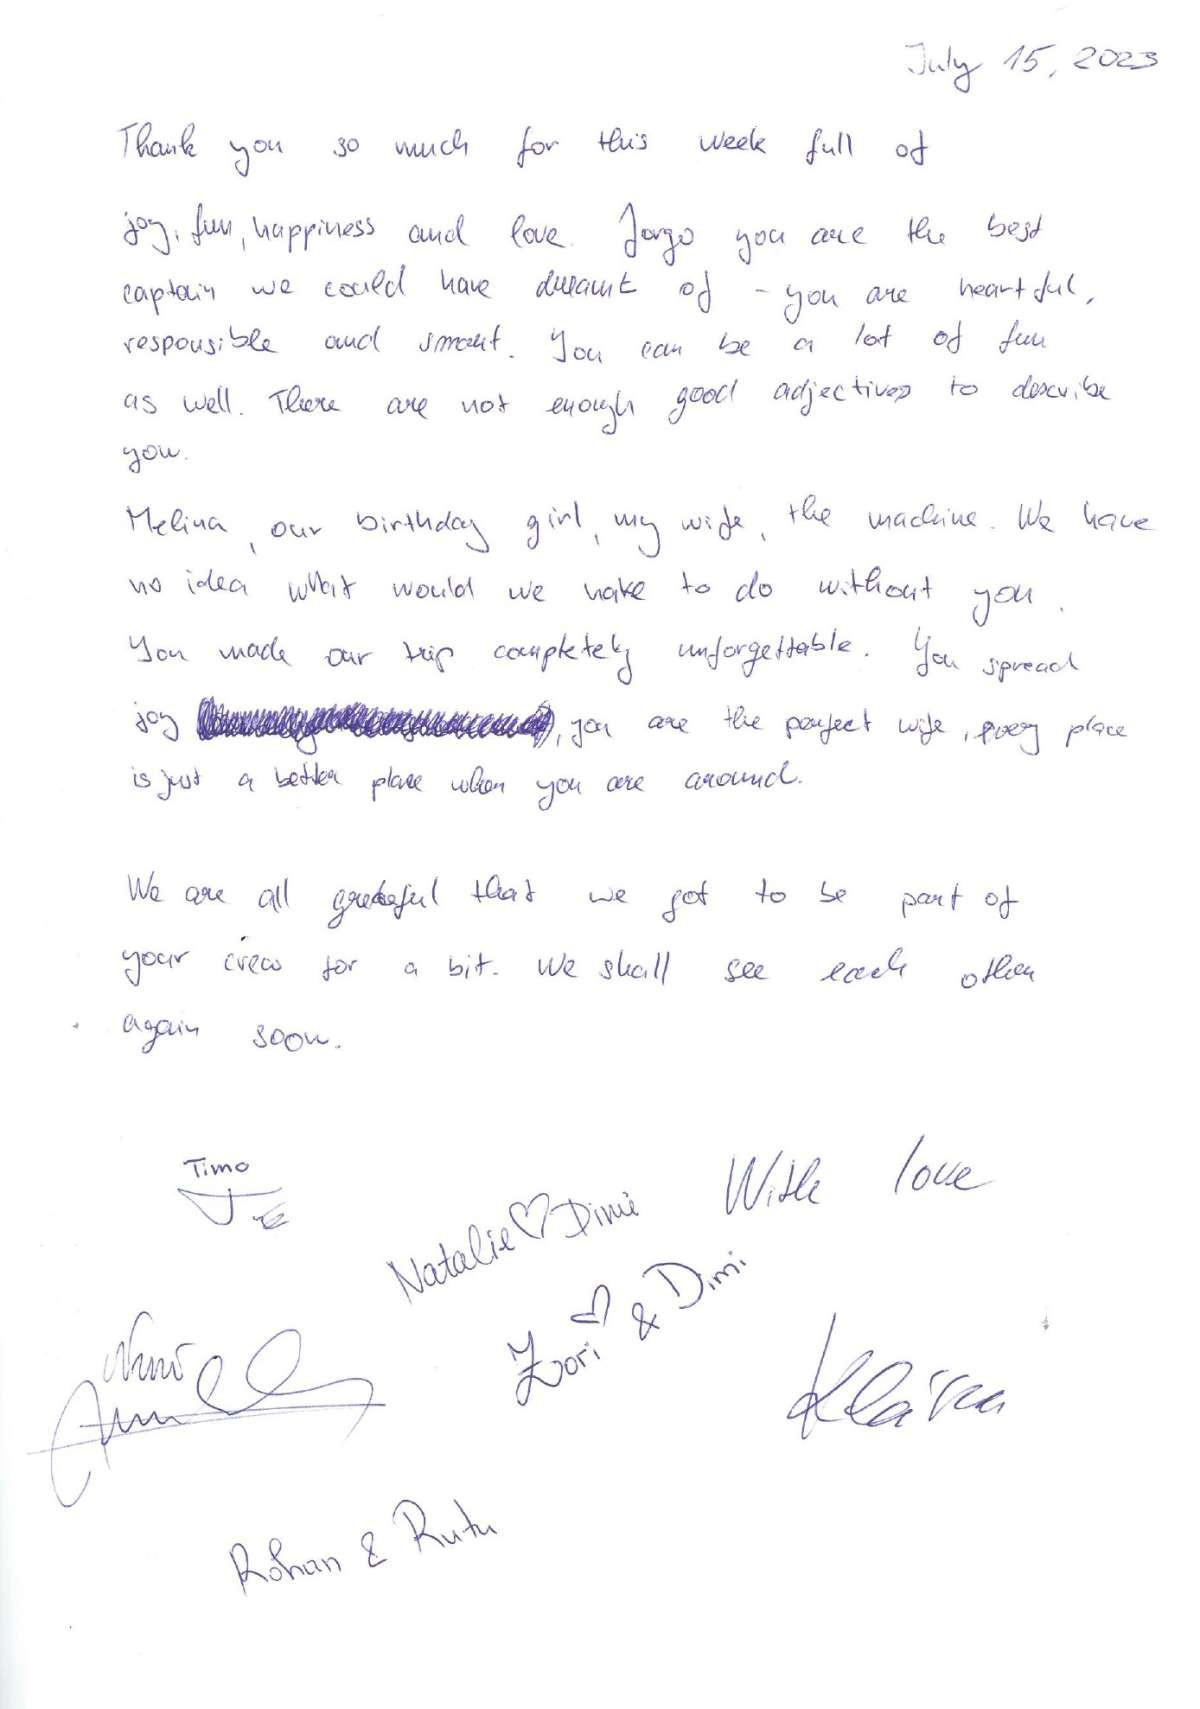 July 15, 2023
Thank you so much for this week full of
joy, fun, happiness and love. Jorgo you are the best
captain we could have dreamt of - you are heartful,
responsible and smart. You can be a lot of fun
as well. There are not enough good adjectives to describe
you.
Melina, our birthday girl, my wife, the machine. We have
no idea what would we have to do without you.
You made our trip completely unforgettable. You spread
joy, you are the perfect wife, every place
is just a better place when you are around.
We are all grateful that we got to be part of
your crew for a bit. We shall see each other
again soon.
Timo
With love
Natalie ♡ Dimi
Zori & Dimi
Nini
Klára
Rohan & Rutu